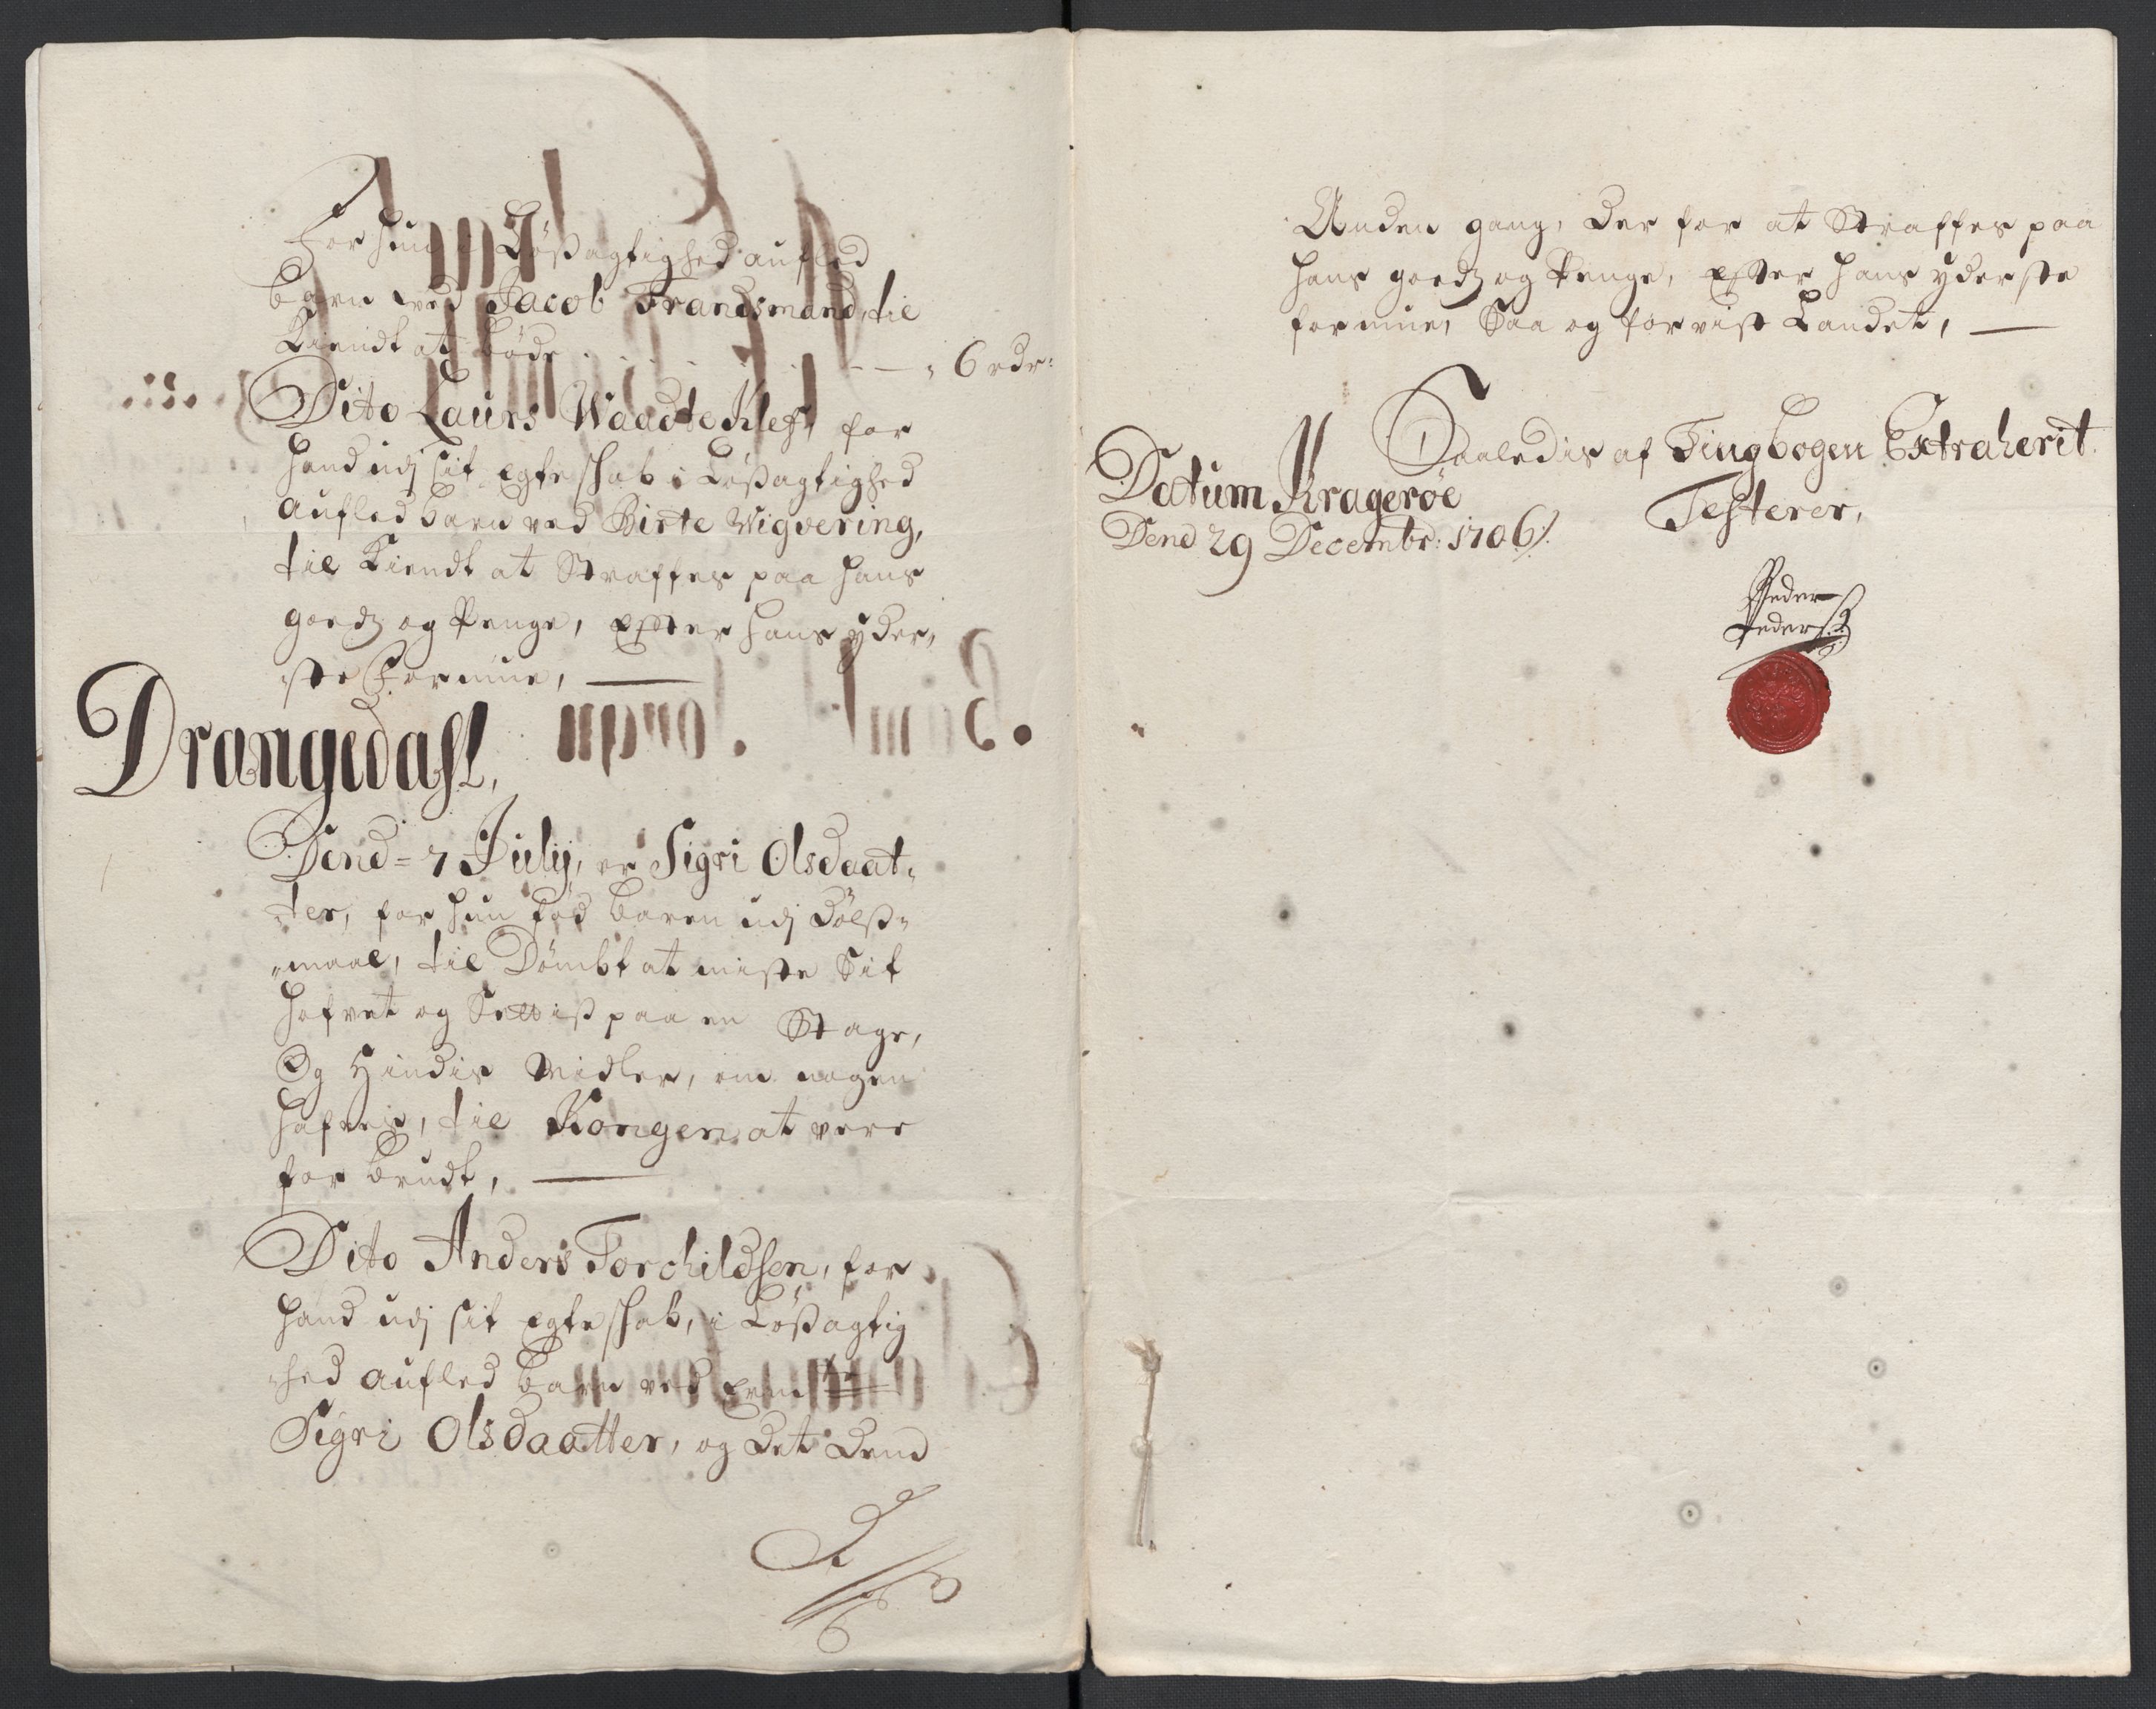 For hun i Løßagtighed aufled
barn ved Jacob Frandsmand, til
Kiendt at bøde - - - 6 rdr:
Dito Laurs Waadteklef, for
hand udj sit egteskab i Løßagtighed
aufled barn ved Birte Wigvering,
til Kiendt at Straffes paa hans
goedz og Penge, Efter hans yder,
ste Formue,
Drangedahl,
Dend 7 Julij, er Sigri Olsdaat,
ter, for hun fød baren udj Dølß,
maal, til Dømbt at miste Sit
hofvet og Settis paa en Stage,
Og Hindis Midler, om nogen
hafvis, til Kongen at vere
forbrudt,
Dito Anders Torchildsen, for
hand udj sit egteskab, i Løßagtig
hed aufled barn ved
Sigri Olsdaatter, og det dend
Anden gang, der for at Straffes paa
hans goedz og Penge, Efter hans yderste
formue, Saa og forvist Landet,
Saaledis af Tingbogen Extraherit
Datum Kragerøe
Testerer,
Dend 29 Decembr: 1706
Peder
Peders